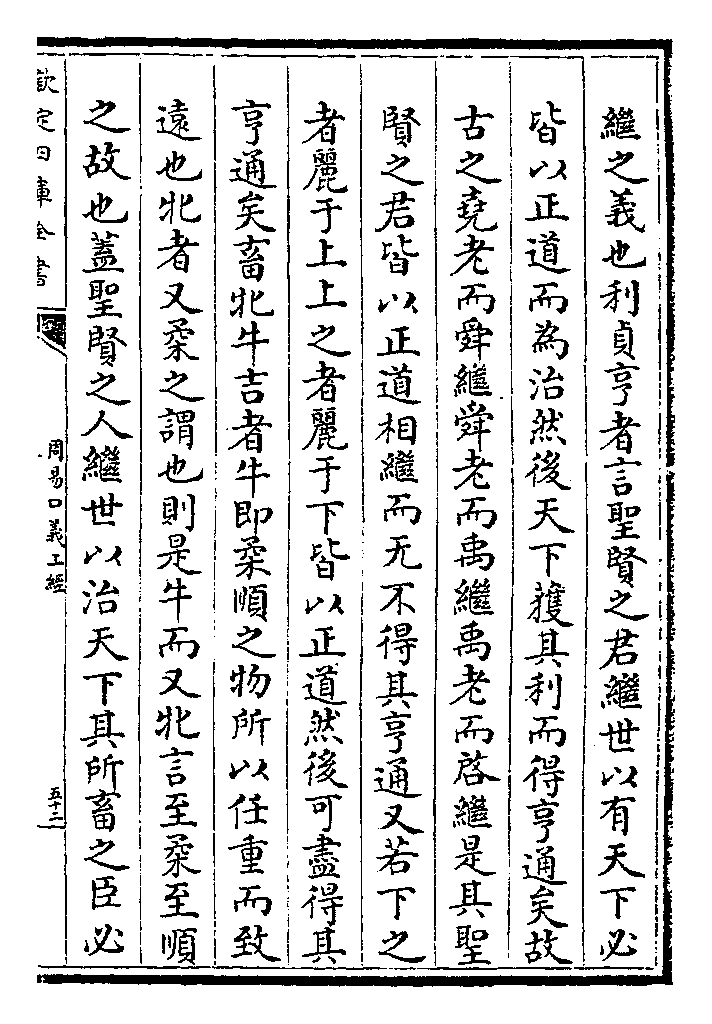 繼之義也利貞亨者言聖賢之君繼世以有天下必
皆以正道而為治然後天下獲其利而得亨通矣故
古之堯老而舜繼舜老而禹繼禹老而啓繼是其聖
賢之君皆以正道相繼而无不得其亨通又若下之
者麗于上上之者麗于下皆以正道然後可盡得其
亨通矣畜牝牛吉者牛即柔順之物所以任重而致
遠也牝者又柔之謂也則是牛而又牝言至柔至順
之故也蓋聖賢之人繼世以治天下其所畜之臣必
欽定四庫全書
周易口義上經
五十二